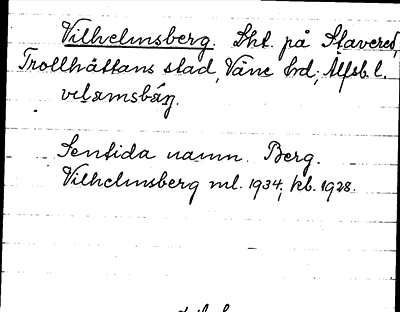 Vilhelmsberg. Lht. på Stavered,
Trollhättans stad, Väne hd; Älfsb. l.
Sentida namn. Berg.
Vilhelmsberg ml. 1934; kb. 1928.